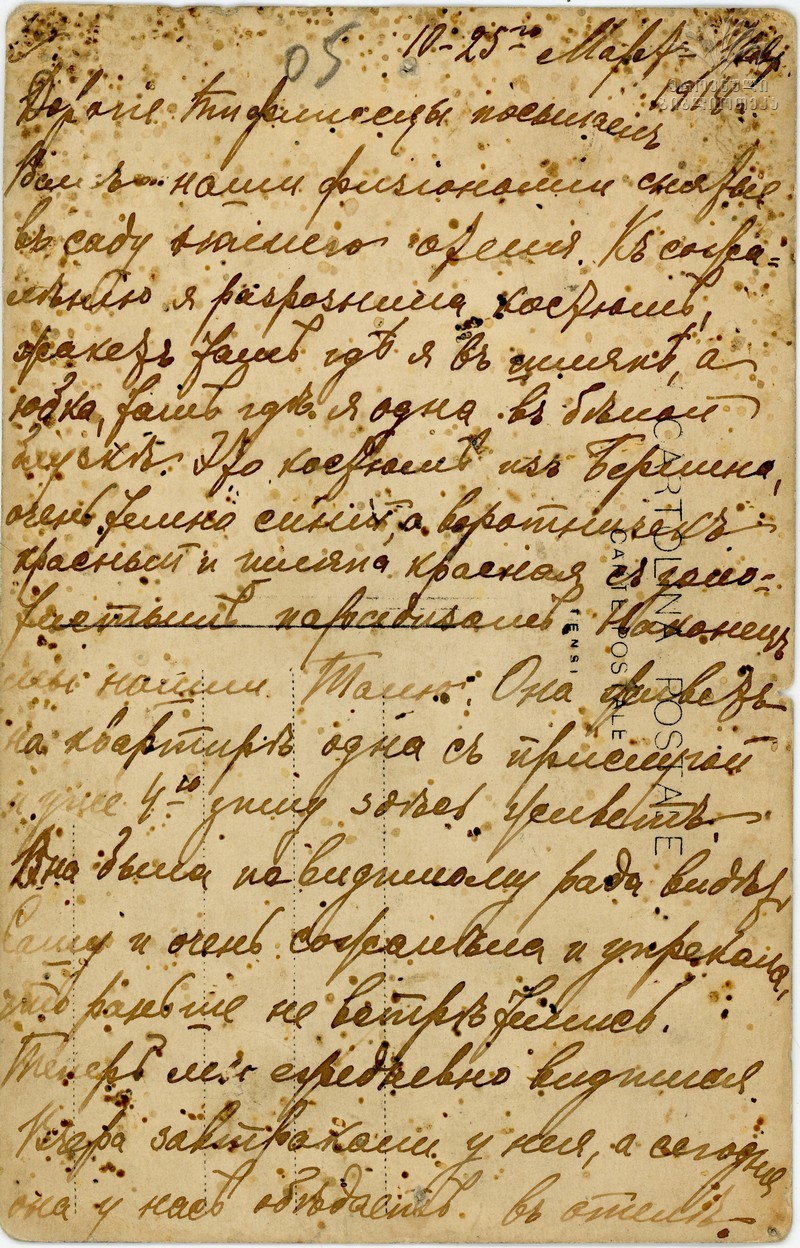 05
10–25го Март
Дорогіе Тифлисцы посылаемъ
Вамъ наши физіономіи снятые
въ саду нашего отеля. Къ сожа=
лѣнію я разрознила костюмъ,
жакетъ тамъ гдѣ я въ шляпѣ, а
юбка, тамъ гдѣ я одна въ бѣлой
блузкѣ. Это костюмъ изъ Берлина,
очень темно синій, а воротничекъ
красный и шляпа красная съ золо-
тистымъ парадизомъ. Наконецъ
мы нашли Таню. Она живетъ
на квартирѣ одна съ прислугой
и уже 4-ю зиму здѣсь живетъ.
Она была по видимому рада видѣть
Сашу и очень сожалѣла и упрекала,
что раньше не встрѣтились.
Теперь мы ежедневно видимся.
Вчера завтракали у нея, а сегодня
она у насъ обѣдаетъ въ отелѣ
CARTOLINA POSTALE
CARTE POSTALE
TENSI